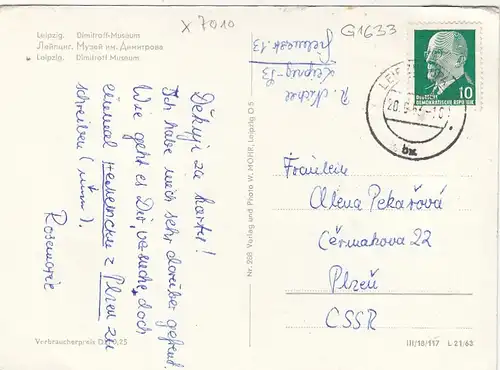 x 7010
G1633
Leipzig. Dimitroff-Museum
Лейпциг. Музей им. Димитрова
Leipzig. Dimitroff Museum
R. Michel
Leipzig-S3
DEUTSCHE
DEMOKRATISCHE REPUBLIK
10
Děkuji za kartu!
Ich habe mich sehr darüber gefreut.
Wie geht es Dir, versuche doch
einmal z Plzeň zu
schreiben
Rosemarie
Nr. 268 Verlag und Photo W. HOFF, Leipzig O 5
Fräulein
Alena Pekařová
Čermakova 22
Plzeň
ČSSR
Verbraucherpreis 0,25
III/18/117 L 21/63